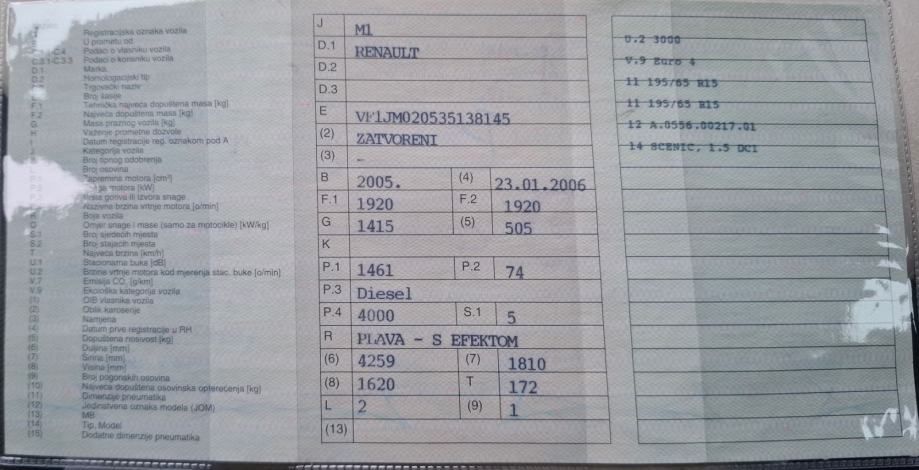 A Registracijska oznaka vozila
U prometu od
C.1-C.4 Podaci o vlasniku vozila
C.3.1-C.3.3 Podaci o korisniku vozila
D.1 Marka
D.2 Homologacijski tip
Trgovački naziv
E Broj šasije
F.1 Tehnička najveća dopuštena masa [kg]
F.2 Najveća dopuštena masa [kg]
G Masa praznog vozila [kg]
H Važenje prometne dozvole
I Datum registracije reg. oznakom pod A
J Kategorija vozila
Broj tipnog odobrenja
Broj osovina
Zapremina motora [cm³]
motora [kW]
Vrsta goriva ili izvora snage
Nazivna brzina vrtnje motora [o/min]
R Boja vozila
Q Omjer snage i mase (samo za motocikle) [kW/kg]
S.1 Broj sjedećih mjesta
S.2 Broj stajaćih mjesta
T Najveća brzina [km/h]
U.1 Stacionarna buka [dB]
U.2 Brzina vrtnje motora kod mjerenja stac. buke [o/min]
V.7 Emisija CO₂ [g/km]
V.9 Ekološka kategorija vozila
(1) OIB vlasnika vozila
(2) Oblik karoserije
(3) Namjena
(4) Datum prve registracije u RH
(5) Dopuštena nosivost [kg]
(6) Duljina [mm]
(7) Širina [mm]
(8) Visina [mm]
(9) Broj pogonskih osovina
(10) Najveća dopuštena osovinska opterećenja [kg]
(11) Dimenzije pneumatika
(12) Jedinstvena oznaka modela (JOM)
(13) MB
(14) Tip, Model
(15) Dodatne dimenzije pneumatika
J M1
D.1 RENAULT
D.2
D.3
E VF1JM020535138145
(2) ZATVORENI
(3) –
B 2005. (4) 23.01.2006
F.1 1920 F.2 1920
G 1415 (5) 505
K
P.1 1461 P.2 74
P.3 Diesel
P.4 4000 S.1 5
R PLAVA - S EFEKTOM
(6) 4259 (7) 1810
(8) 1620 T 172
L 2 (9) 1
(13)
U.2 3000
V.9 Euro 4
11 195/65 R15
11 195/65 R15
12 A.0556.00217.01
14 SCENIC, 1.5 DCI